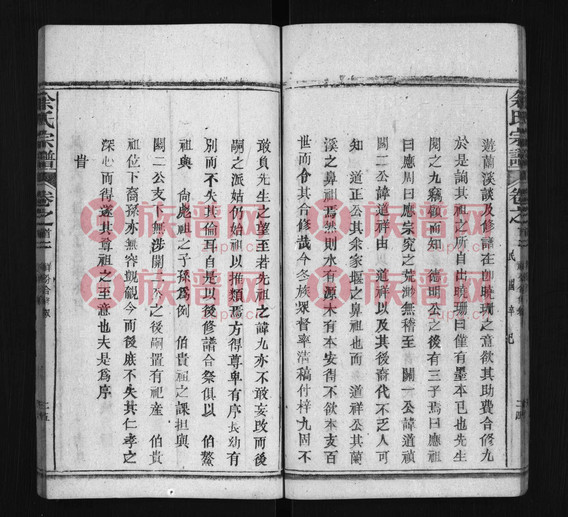 遊蘭溪談及修譜在即曉珊之意欲其助費合修九
於是詢其祖之所自出曉珊曰僅有墨本已也先生
閱之九竊做而知　德明公之後有三子焉曰應祖
曰應周曰應宗究之荒渺無稽至　關一公諱道禎
關二公諱道祥由　道禎以及其後裔代不乏人可
知　道正公其乘家堰之鼻祖也而　道祥公其蘭
溪之鼻祖焉然則水有源木有本安得不欲本支百
世而合其合修哉今冬族眾督率清稿付梓九固不
余氏宗譜
卷之首二
民國
敢負先生之望至若先祖之諱九亦不敢妄改而後
嗣之派姑仍始祖以推類焉方得尊卑有序長幼有
別而不失其倫耳自茲以後修譜合祭俱以　伯鰲
祖與　尚彪祖之子孫為例　伯貴祖之課担與
關二公支下無涉開示之後嗣置有祀產　伯貴
祖位下裔孫亦無容覬覦今而後庶不失其仁孝之
深心而得遂其尊祖之至意也夫是為序
旹
余氏宗譜
卷之首二
族譜网
族譜网
族譜网
族譜网